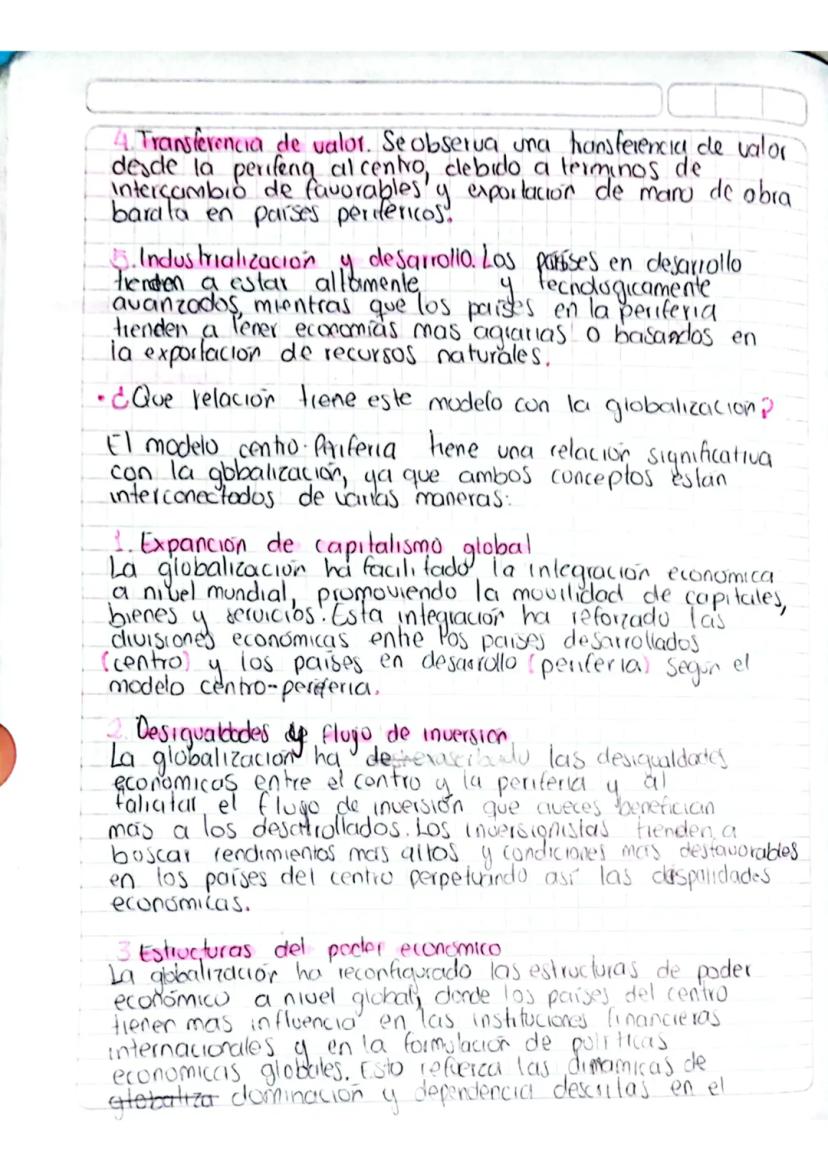 4. Transferencia de valor. Se observa una transferencia de valor
desde la periferia al centro, debido a terminos de
intercambio de favorables y exportación de mano de obra
barata en países periféricos.
5. Industrialización y desarrollo. Los países en desarrollo
tienden a estar altamente y tecnologicamente
avanzados, mientras que los países en la periferia
tienden a tener economías mas agrarias o basandos en
la exportacion de recursos naturales.
• ¿Que relación tiene este modelo con la globalización?
El modelo centro-Periferia tiene una relación significativa
con la globalización, ya que ambos conceptos estan
interconectados de varias maneras:
1. Expanción de capitalismo global
La globalización ha facilitado la integración economica
a nivel mundial, promoviendo la movilidad de capitales,
bienes y servicios. Esta integración ha reforzado las
divisiones económicas entre los países desarrollados
(centro) y los países en desarrollo (periferia) según el
modelo centro-periferia.
2. Desigualdades de flujo de inversión
La globalización ha las desigualdades
económicas entre el centro y la periferia y al
falicitar el flujo de inversión que aveces benefician
más a los desarrollados. Los inversionistas tienden a
buscar rendimientos mas altos y condiciones mas desfavorables
en los países del centro perpetuando así las disparidades
económicas.
3 Estructuras del poder económico
La globalización ha reconfigurado las estructuras de poder
económico a nivel global, donde los países del centro
tienen mas influencia en las instituciones financieras
internacionales y en la formulación de políticas
economicas globales. Esto refuerza las dinamicas de
globaliza dominación y dependencia descritas en el